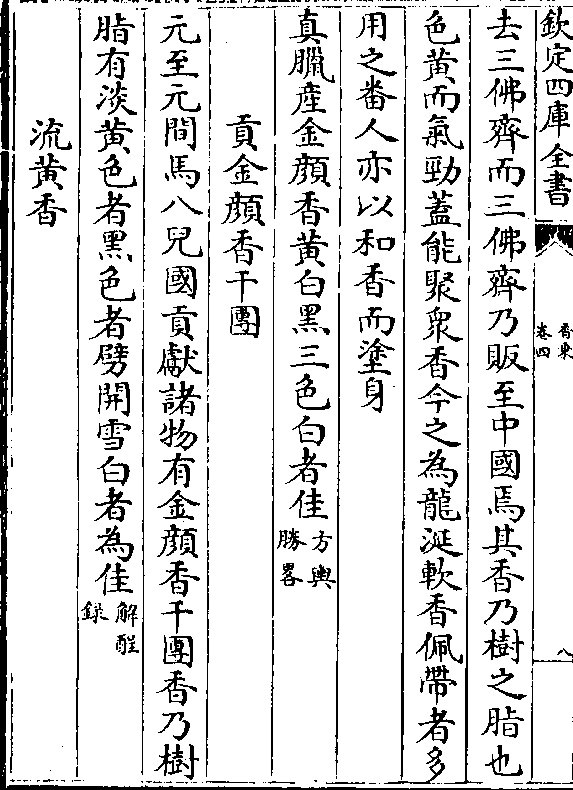 欽定四庫全書
香乘
卷四
八
去三佛齊而三佛齊乃販至中國焉其香乃樹之脂也
色黃而氣勁蓋能聚衆香今之為龍涎軟香佩帶者多
用之番人亦以和香而塗身
真臘產金顔香黃白黑三色白者佳方輿勝畧
貢金顔香千團
元至元間馬八兒國貢獻諸物有金顔香千團香乃樹
脂有淡黃色者黑色者劈開雪白者為佳解酲録
流黃香